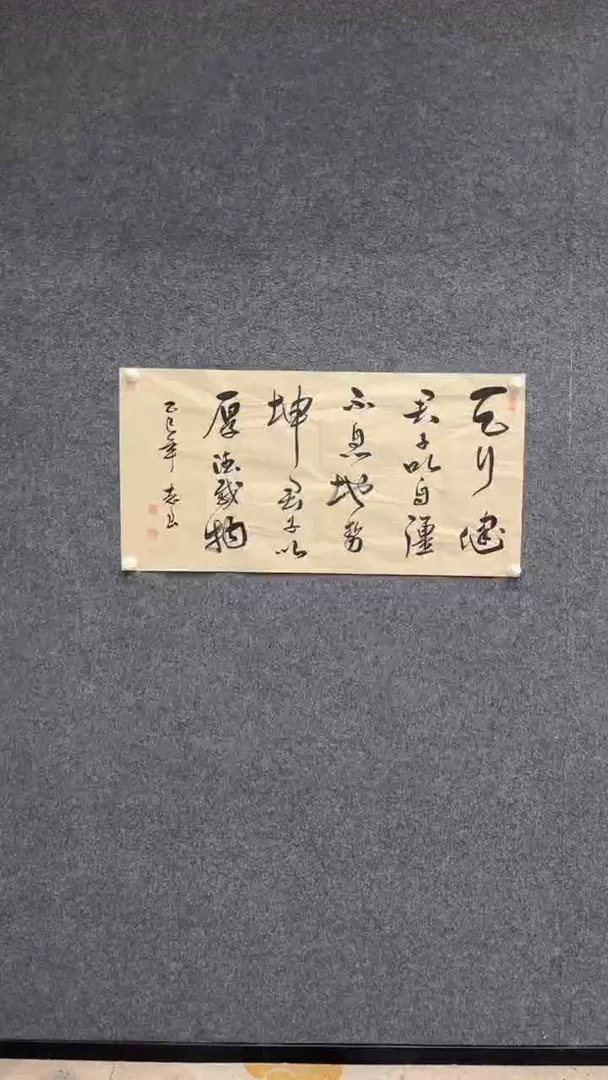 天行健
君子以自彊
不息地势
坤君子以
厚德载物
乙巳年 志出